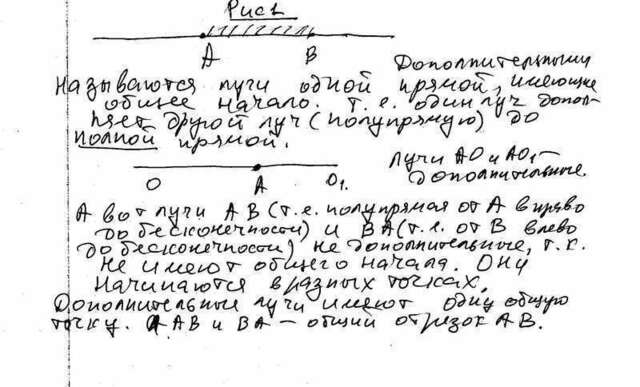 Рис 1
А В
Дополнительными
называются лучи одной прямой, имеющие
общее начало. Т. е. один луч допол-
няет другой луч (полупрямую) до
полной прямой.
О А О1.
лучи АО и АО1 -
дополнительные.
А вот лучи АВ (т.е. полупрямая от А вправо
до бесконечности) и ВА (т.е. от В влево
до бесконечности) не дополнительные, т.к.
не имеют общего начала. Они
начинаются в разных точках.
Дополнительные лучи имеют одну общую
точку. А АВ и ВА - общий отрезок АВ.